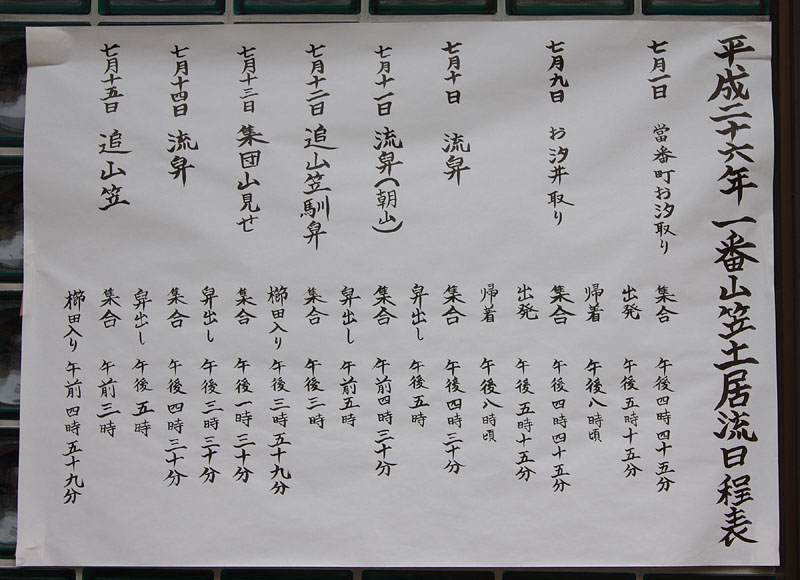 平成二十六年 一番山笠土居流日程表
七月一日 當番町お汐取り 集合 午後四時四十五分
出発 午後五時十五分
帰着 午後八時頃
七月九日 お汐井取り 集合 午後四時四十五分
出発 午後五時十五分
帰着 午後八時頃
七月十日 流舁 集合 午後四時三十分
舁出し 午後五時
七月十一日 流舁(朝山) 集合 午前四時三十分
舁出し 午前五時
七月十二日 追山笠馴舁 集合 午後三時
櫛田入り 午後三時五十九分
七月十三日 集団山見せ 集合 午後一時三十分
舁出し 午後三時三十分
七月十四日 流舁 集合 午後四時三十分
舁出し 午後五時
七月十五日 追山笠 集合 午前三時
櫛田入り 午前四時五十九分